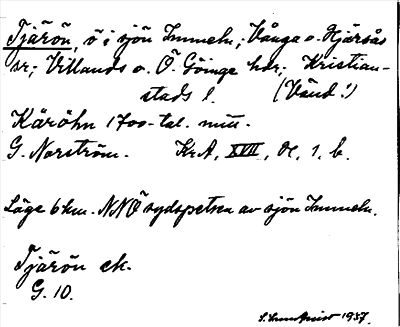 Tjärön, ö i sjön Immeln, Vånga o. Hjärsås
sr; Villands o. Ö. Göinge hdr; Kristian-
stads l. (Vänd!)
Käröhn 1700-tal. mitt.
G. Norström. KrA, XVII, Öl, 1, b.
Läge 6 km. NNÖ sydspetsen av sjön Immeln.
Tjärön ek.
G. 10.
1957.